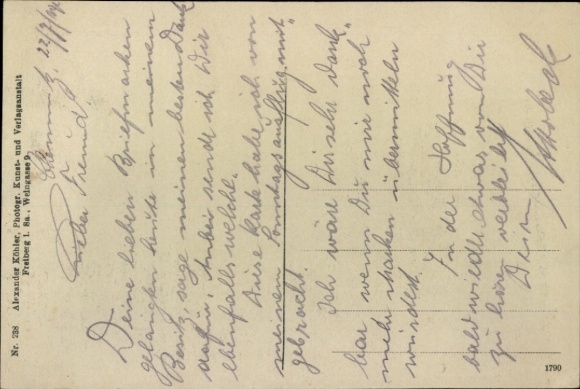 Chemnitz, 22/7
Lieber Freund!
Deine lieben Briefmarken
gelangten heute in meinen
Besitz, sage meinen besten Dank
dafür, anbei sende ich Dir
ebenfalls welche.
Diese Karte habe ich von
meinem Sonntagsausflug mit
gebracht.
Ich wäre Dir sehr dank-
bar wenn Du mir noch
mehr Marken übermitteln
würdest.
In der Hoffnung
bald wieder etwas von Dir
zu hören verbleibt
Dein
Nr. 238 Alexander Köhler, Photogr. Kunst- und Verlagsanstalt
Freiberg i. Sa., Weingasse 9
1790